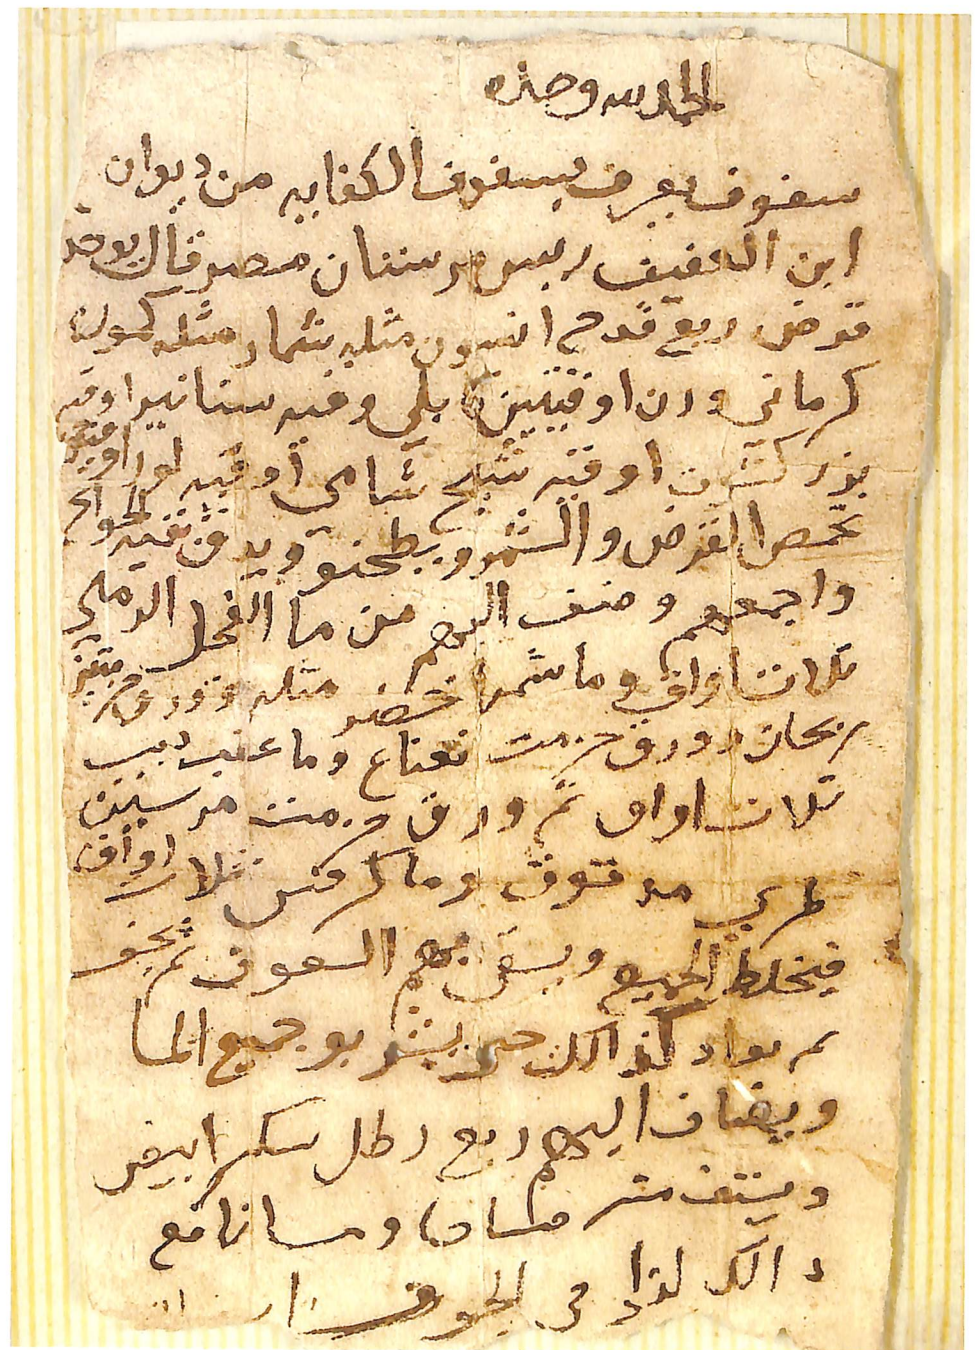 الحمد لله وحده
سفوف يعرف بسفوف الكفايه من ديوان
ابن العفيف ريس مرستان مصر قال يوخد
قرض ربع قدح انيسون مثله شمار مثله كمون
كرماني وزن اوقيتين كابلي وقيه سنانير اوقيه
بزر كشوت اوقيه شيح شامي اوقيه لوز اوقيه
تحمص القرض والشمر ويطحنو ويدق بقية الحوايج
واجمعهم وضف اليهم من ما الفجل الرملي
تلات اواق وما شمر اخضر مثله وورق
ريحان وورق حزمت نعناع وما عنب ديب
تلات اواق ثم ورق حزمت مرسين
طري مدقوق وما كرفس ثلاث اواق
فيخلط الجميع ويسقى بهم السفوف ثم يجفف
ثم يعاد كذالك حتى يشربو جميع الما
ويضاف اليهم ربع رطل سكر ابيض
ويستف منه صباحا ومسا نافع
دالك لدا في الجوف